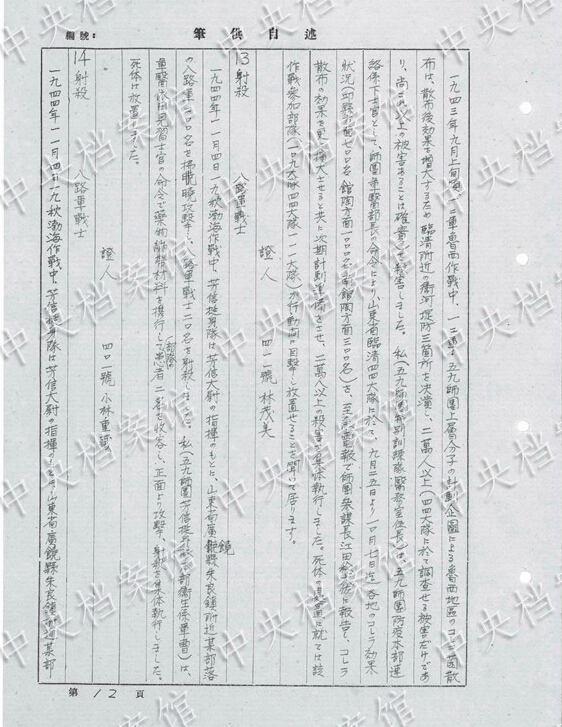 編號：
筆供自述
一九四三年九月上旬頃、一二軍魯西作戰中、一二軍、五九師團ノ計劃企圖による魯西地區のコレラ菌散
布は、散布後効果を增大するため臨清附近の衛河堤防三箇所を決潰し、二萬人以上(四四大隊に於て調査せる被害だけであ
り、尚これ以上の被害あることは確實)と報告しました。私(五九師團特別訓練隊醫務室伍長)は、五九師團防疫本部連
絡係下士官として、師團軍醫部長の命令により、山東省臨清四四大隊に於て、九月二五日より一〇月七日迄各地のコレラ効果
狀況 館陶方面 を、電報で師團參謀長江田 に報告し、コレラ
散布の効果を更に擴大させると共に次期計劃準備をさせ、二萬人以上の殺害を集体執行しました。死体の処置に就ては該
作戰參加部隊(一〇九大隊四四大隊一一一大隊)が行動間に目擊し放置せることを聞いて居ります。
證人 四一一號 林茂美
13 射殺 八路軍戰士
一九四四年一一月四日一九秋渤海作戰中、芳信挺身隊は芳信大尉の指揮のもとに、山東省廣饒縣朱良鎮附近某部落
の八路軍二〇〇名を拂曉攻擊し、八路軍戰士二〇名を射殺しました。私(五九師團芳信挺身隊本部衛生係軍曹)は、
軍醫 見習士官の命令で藥物 材料を携行して患者二名を收容し、正面より攻擊、射殺を集体執行しました。
死体は放置しました。
證人 四〇一號 小林重
14 射殺 八路軍戰士
一九四四年一一月四日一九秋渤海作戰中、芳信挺身隊は芳信大尉の指揮のもと、山東省廣饒縣朱良鎮附近某部
第 12 頁
中央档案馆